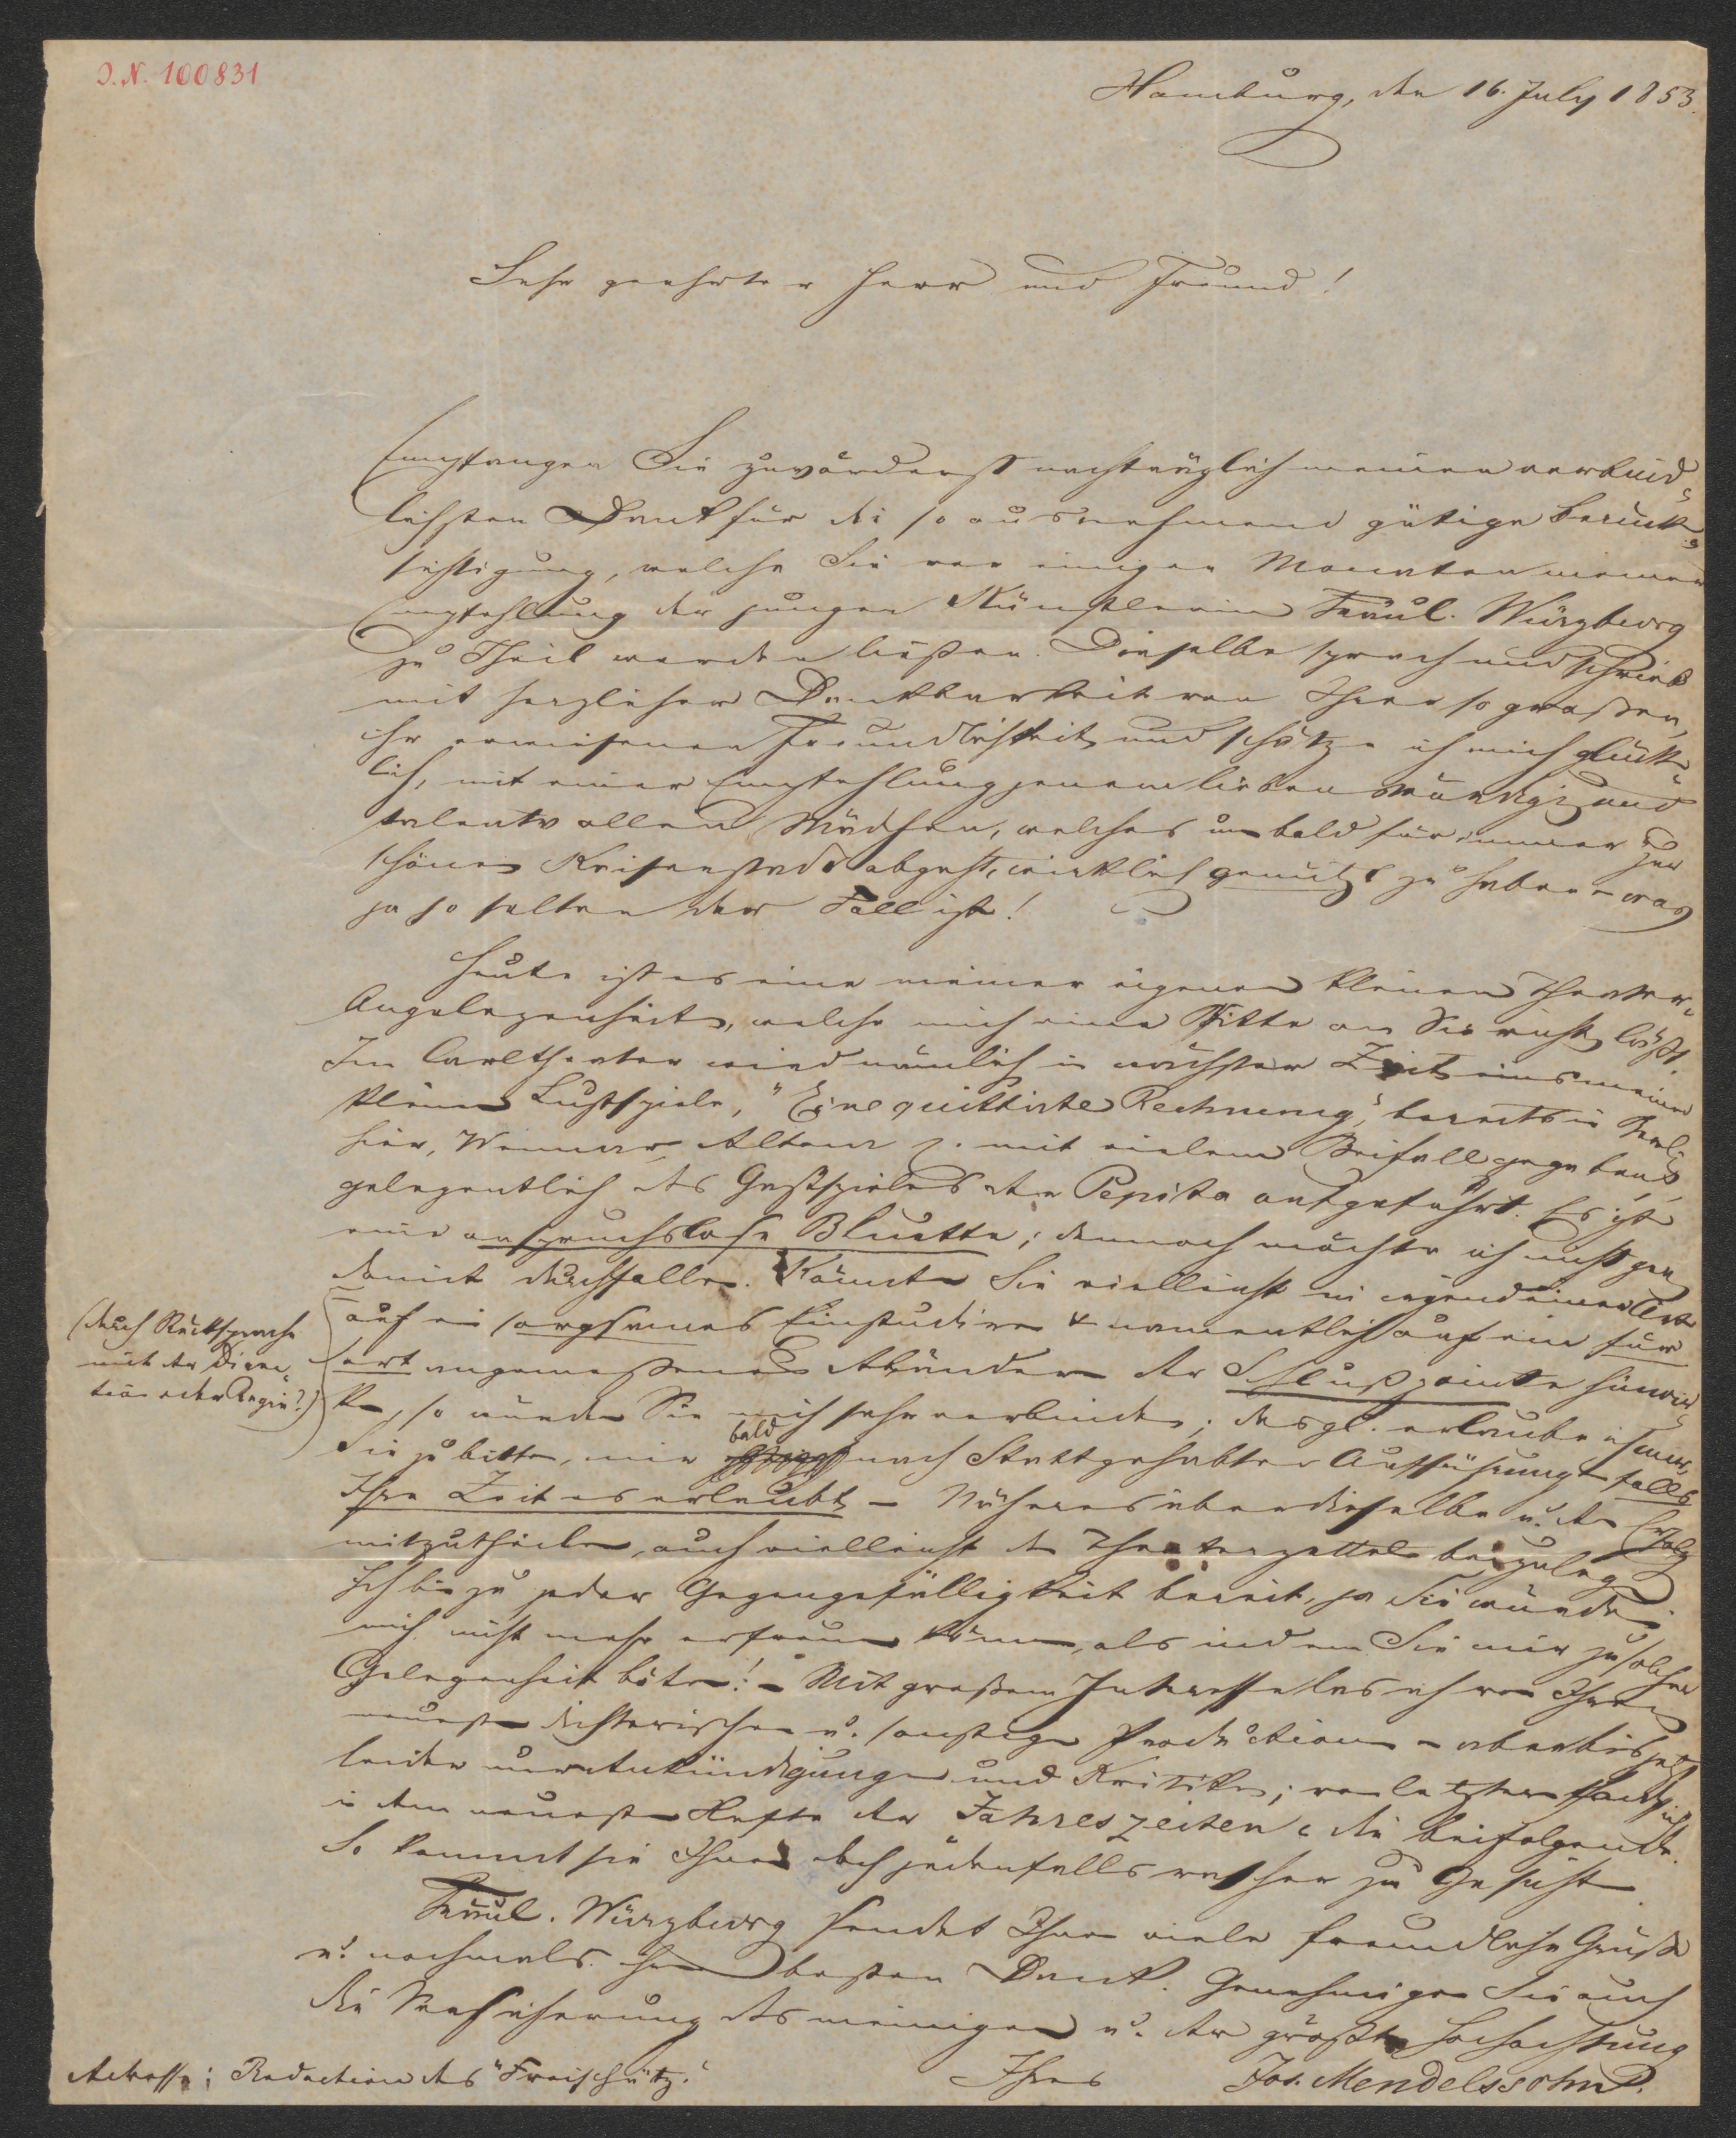 J. N. 100831
Hamburg, den 16. July 1853.
Sehr geehrter Herr und Freund!
Empfangen Sie zuvörderst nachträglich meinen verbind-
lichsten Dank für die so ausnehmend gütige Berück-
sichtigung, welche Sie vor einigen Monaten meiner
Empfehlung der jungen Künstlerin Fräul. Würzburg
zu Theil werden ließen. Dieselbe sprach und schrieb
mit herzlicher Dankbarkeit von Ihrer so großen,
ihr erwiesenen Freundlichkeit und schätze ich mich glück-
lich, mit einer Empfehlung jenem liebenswürdigen und
talentvollen Mädchen, welches uns bald für immer zur
schönen Kaiserstadt abgeht, wirklich genützt zu haben – was
ja so selten der Fall ist!
Heute ist es eine meiner eigenen kleinen Theater-
Angelegenheiten, welche mich eine Bitte an Sie richten läßt.
Im Carltheater wird nämlich in nächster Zeit eins meiner
kleinen Lustspiele, "Eine quittirte Rechnung", bereits in Berlin
hier, Weimar, Altona pp. mit vielem Beifall gegeben,
gelegentlich des Gastspieles der Pepita aufgeführt. Es ist
eine anspruchslose Bluette; dennoch möchte ich nicht gern
damit durchfallen. Könnten Sie vielleicht in irgend einer Art
(durch Rücksprache
mit der Direc-
tion oder Regie?)
auf ein sorgsames Einstudiren & namentlich auf ein für
dort angemessenes Abändern der Schlußpointe hinwir-
ken, so würden Sie mich sehr verbinden; desgl. erlaube ich mir,
Sie zu bitten, mir bald nach Stattgehabter Aufführung – falls
Ihre Zeit es erlaubt – Näheres über dieselbe u. den Erfolg
mitzutheilen, auch vielleicht den Theaterzettel beizulegen.
Ich bin zu jeder Gegengefälligkeit bereit, ja Sie würden
mich nicht mehr erfreuen können, als indem Sie mir zu solcher
Gelegenheit böten! – Mit großem Interesse las ich von Ihren
neuesten dichterischen u. sonstigen Productionen – aber bis jetzt
leider nur Ankündigungen und Kritiken; von letztern fand ich
in dem neuesten Hefte der Jahreszeiten die beifolgende.
So kommt sie Ihnen doch jedenfalls rascher zu Gesicht.
Fräul. Würzburg sendet Ihnen viele freundliche Grüße
u. nochmals ihren besten Dank. Genehmigen Sie auch
die Versicherung des meinigen u. der größten Hochachtung
Ihres Jos. Mendelssohn
Adresse: Redaction des "Freischütz."